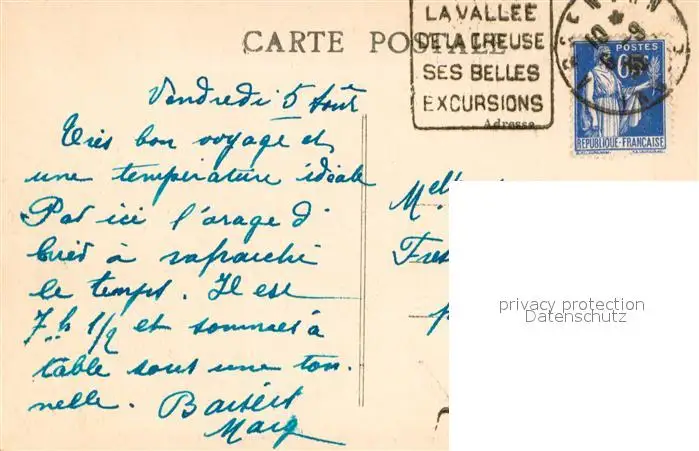 LA VALLÉE
DE LA CREUSE
SES BELLES
EXCURSIONS
CARTE POSTALE
Adresse
POSTES
65c
RÉPUBLIQUE-FRANÇAISE
Vendredi 5 Août
Très bon voyage et
une température idéale
Par ici l'orage d'
hier à rafraichi
le temps. Il est
7h 1/2 et sommes à
table sous une ton-
nelle. Baisers
Marg
Mell
Fres
privacy protection
Datenschutz